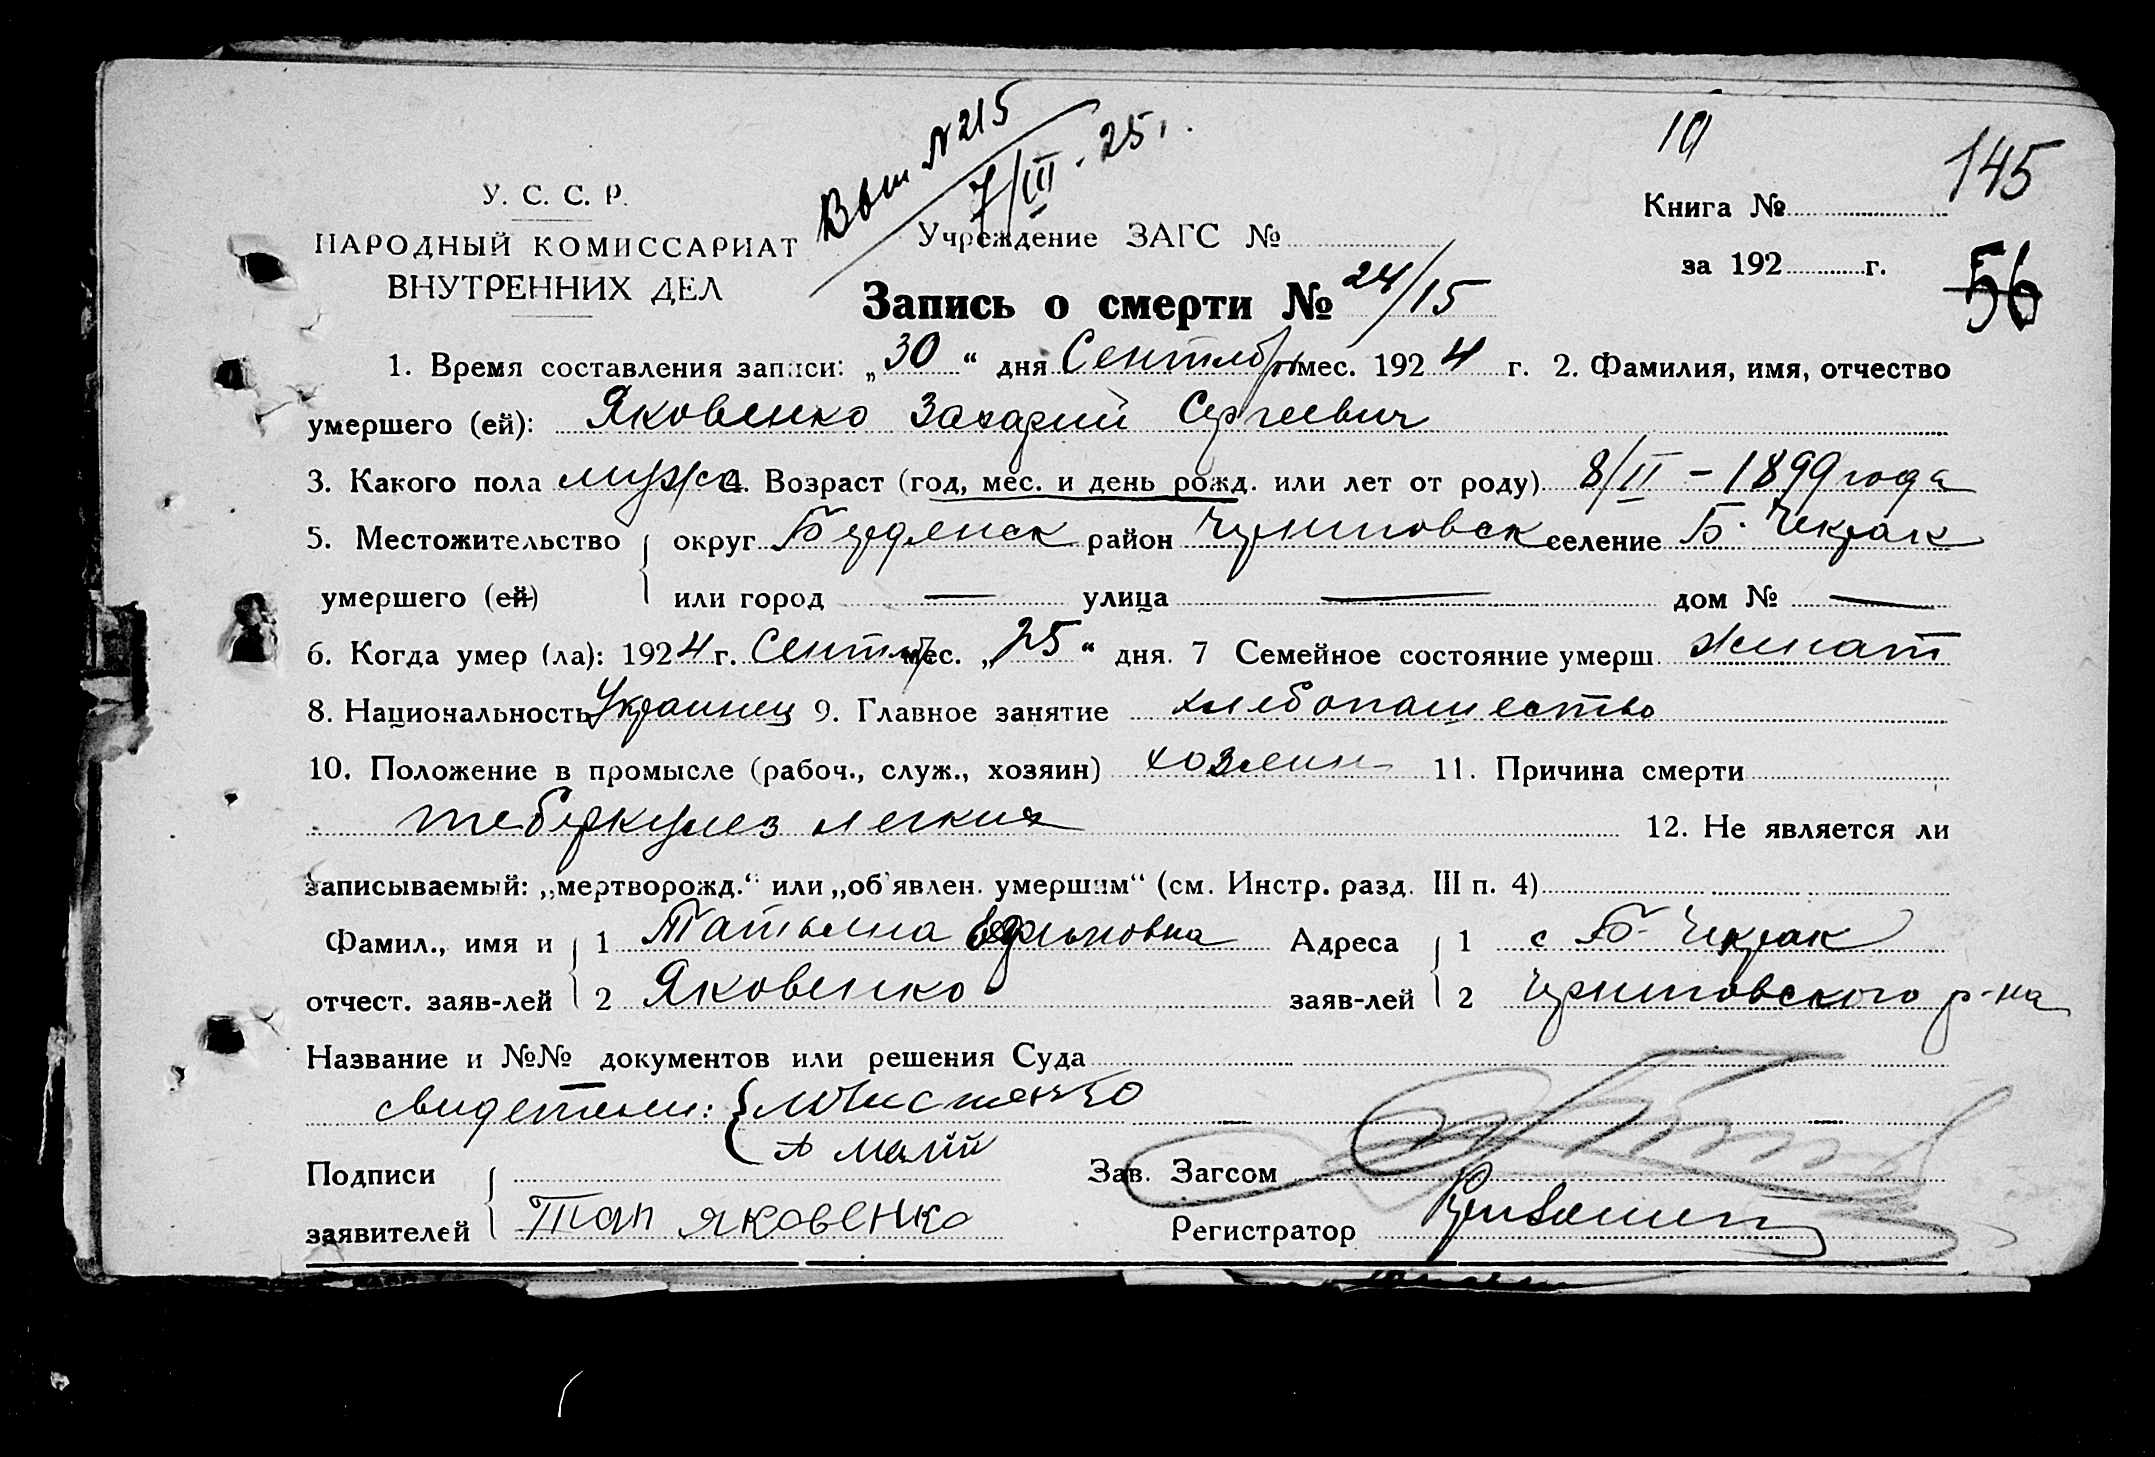 Вып №215
7/III. 25.
19
145
У. С. С. Р.
НАРОДНЫЙ КОМИССАРИАТ
ВНУТРЕННИХ ДЕЛ
Учреждение ЗАГС №
Книга №
за 192 г.
56
Запись о смерти № 24/15
1. Время составления записи: „30“ дня Сентября мес. 1924 г. 2. Фамилия, имя, отчество
умершего (ей): Яковенко Захарий Сергеевич
3. Какого пола мужск 4. Возраст (год, мес. и день рожд. или лет от роду) 8/II - 1899 года
5. Местожительство округ Бердянск район Черниговск селение Б. Чекрак
умершего (ей) или город — улица — дом № —
6. Когда умер (ла): 1924 г. Сентяб мес. „25“ дня. 7 Семейное состояние умерш. женат
8. Национальность Украинец 9. Главное занятие хлебопашество
10. Положение в промысле (рабоч., служ., хозяин) хозяин 11. Причина смерти
теберкулез легких 12. Не является ли
записываемый: „мертворожд.“ или „об'явлен. умершим“ (см. Инстр. разд. III п. 4)
Фамил., имя и 1 Татьяна Ефимовна Адреса 1 с Б. Чекрак
отчест. заяв-лей 2 Яковенко заяв-лей 2 Черниговского р-на
Название и №№ документов или решения Суда
свидетели:
А Малий
Подписи Зав. Загсом
заявителей Тат Яковенко Регистратор